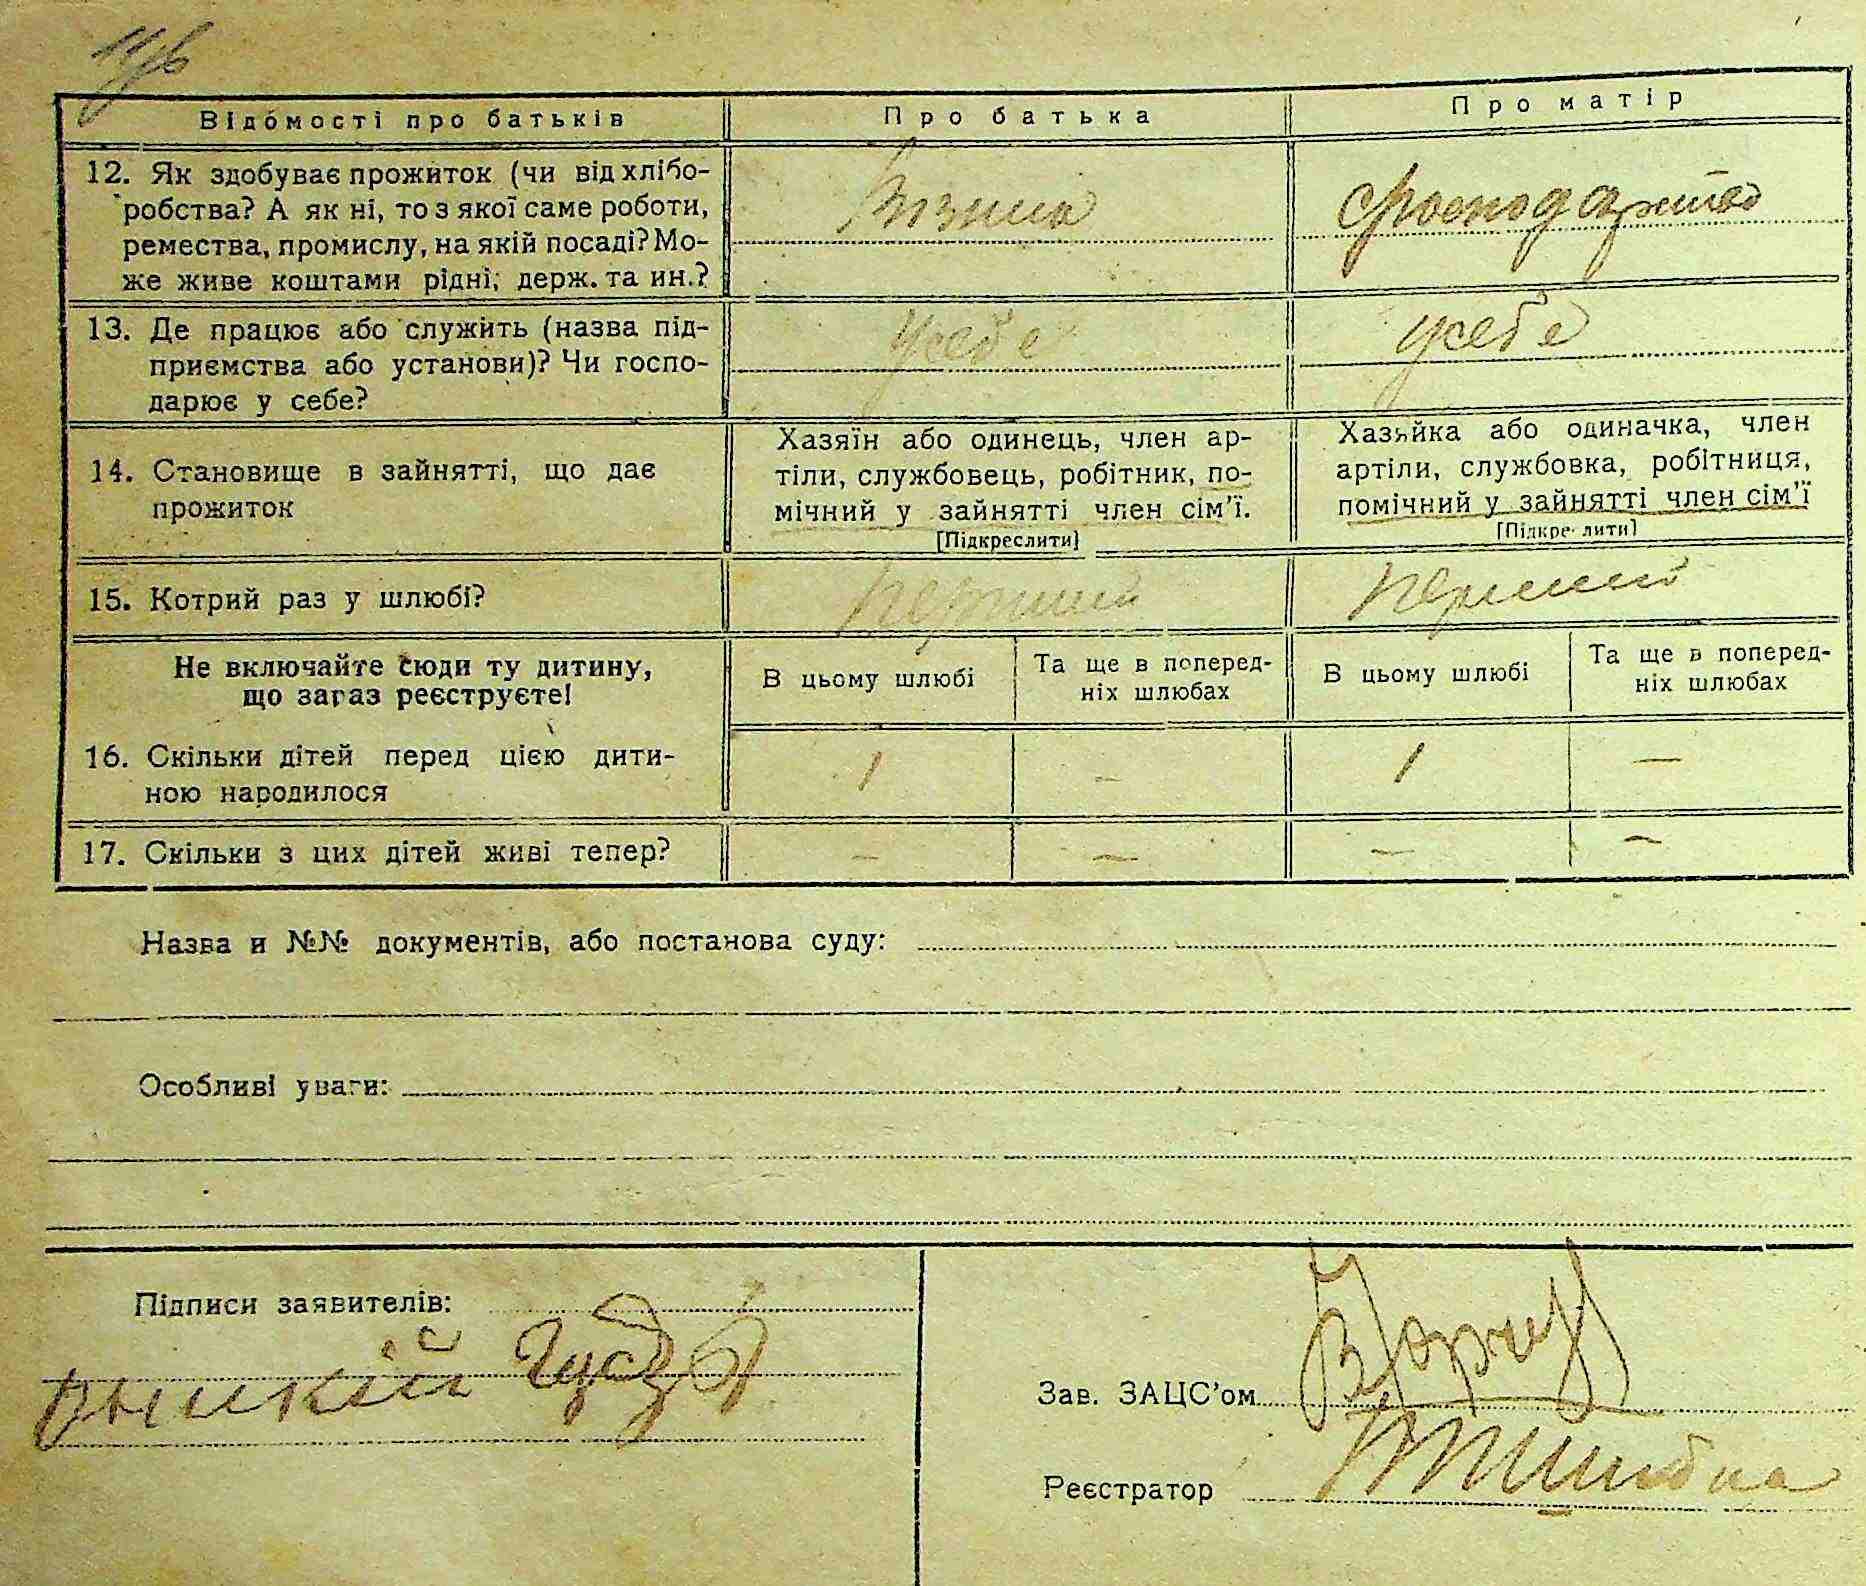 Відомості про батьків
Про батька
Про матір
12. Як здобуває прожиток (чи від хлібо-
робства? А як ні, то з якої саме роботи,
ремества, промислу, на якій посаді? Мо-
же живе коштами рідні, держ. та ин.?
Візник
господарство
13. Де працює або служить (назва під-
приємства або установи)? Чи госпо-
дарює у себе?
у себе
у себе
14. Становище в зайнятті, що дає
прожиток
Хазяїн або одинець, член ар-
тіли, службовець, робітник, по-
мічний у зайнятті член сім'ї.
[Підкреслити]
Хазяйка або одиначка, член
артіли, службовка, робітниця,
помічний у зайнятті член сім'ї
[Підкреслити]
15. Котрий раз у шлюбі?
перший
перший
Не включайте сюди ту дитину,
що зараз реєструєте!
В цьому шлюбі
Та ще в поперед-
ніх шлюбах
В цьому шлюбі
Та ще в поперед-
ніх шлюбах
16. Скільки дітей перед цією дити-
ною народилося
1
—
1
—
17. Скільки з цих дітей живі тепер?
—
—
—
—
Назва и №№ документів, або постанова суду:
Особливі уваги:
Підписи заявителів:
Зав. ЗАЦС'ом
Реєстратор